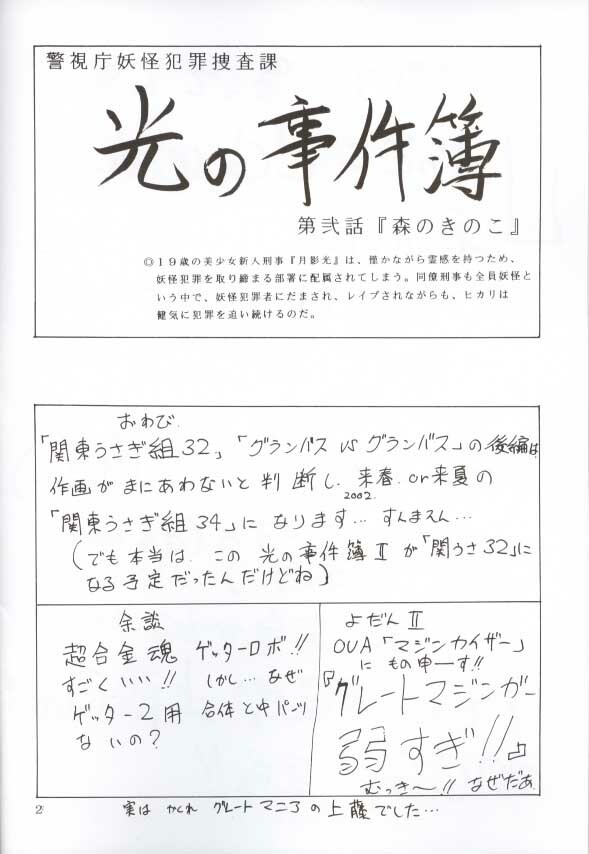 警視庁妖怪犯罪捜査課
光の事件簿
第弐話『森のきのこ』
◎19歳の美少女新人刑事『月影光』は、僅かながら霊感を持つため、
妖怪犯罪を取り締まる部署に配属されてしまう。同僚刑事も全員妖怪と
いう中で、妖怪犯罪者にだまされ、レイプされながらも、ヒカリは
健気に犯罪を追い続けるのだ。
おわび
「関東うさぎ組32」「グランバス VS グランバス」の後編は
作画がまにあわないと判断し、来春 or 来夏の
2002.
「関東うさぎ組34」になります… すんません…
(でも本当は、この光の事件簿Ⅱが「関うさ32」に
なる予定だったんだけどね)
余談
超合金魂 ゲッターロボ!!
すごくいい!! しかし… なぜ
ゲッター2用 合体と中パンツ
ないの?
よだんⅡ
OVA「マジンカイザー」
にもの申ーす!!
『グレートマジンガー
弱すぎ!!』
むっき〜!! なぜだぁ
実は かくれ グレートマニアの上藤でした…
2